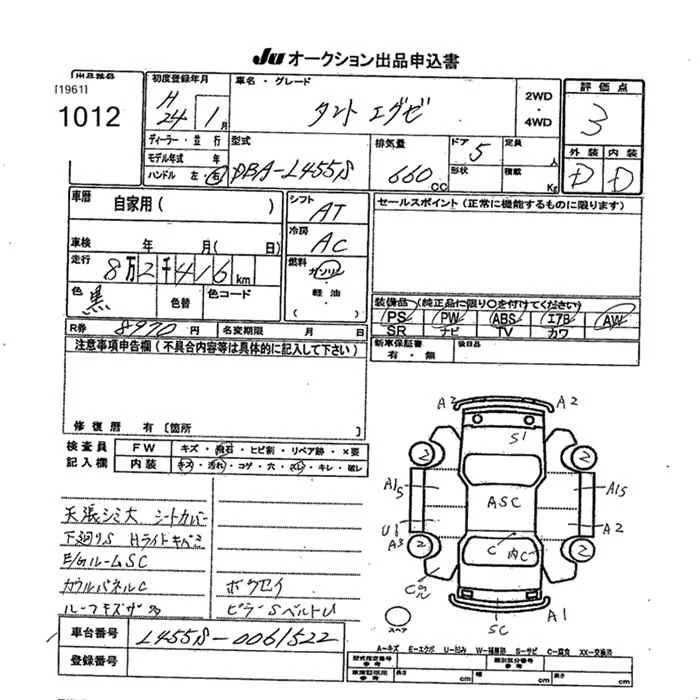 Ju オークション出品申込書
出品番号
[1961]
1012
初度登録年月
H
24 1月
車名・グレード
タント エグゼ
2WD
・
4WD
評価点
3
ディーラー・並行
モデル年式 年
ハンドル 左・右
型式
DBA-L455S
排気量
660 CC
ドア 5
形状
定員 人
積載 Kg
外装 内装
D D
車暦
自家用( )
シフト
AT
セールスポイント(正常に機能するものに限ります)
車検 年 月( 日)
冷房
AC
走行
8万2千416km
燃料
ガソリン
・
軽油
・
( )
色 黒
色替
色コード
装備品(純正品に限り○を付けてください)
PS PW ABS エアB AW
SR ナビ TV カワ
R券 8970円
名変期限 月 日
新車保証書
有・無
後日品
注意事項申告欄(不具合内容等は具体的に記入して下さい)
修復暦 有〔箇所 〕
検査員
記入欄
FW キズ・飛石・ヒビ割・リペア跡・×要
内装 キズ・汚れ・コゲ・穴・スレ・キレ・破レ
天張シミ大 シートカバー
下廻りS Hライトキバミ
E/GルームSC
カウルパネルC
ルーフキズ
ボウセイ
ピラーSベルトU
A2 A2
S1
2 2
A15 ASC A15
U1 A2
A3 2 C 内C 2
C
A1
SC
スペア
車台番号 L455S-0061522
登録番号
A-キズ E-エクボ U-凹み W-補修跡 S-サビ C-腐食 XX-交換済
型式指定番号
参考
類別区分番号
参考
車庫証明用
参考
長さ cm 幅 cm 高さ cm